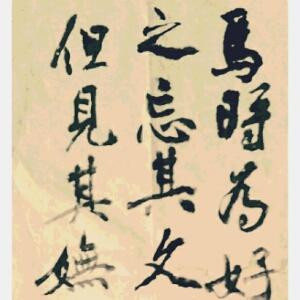 馬時為好
之忘其文
但見其嫵